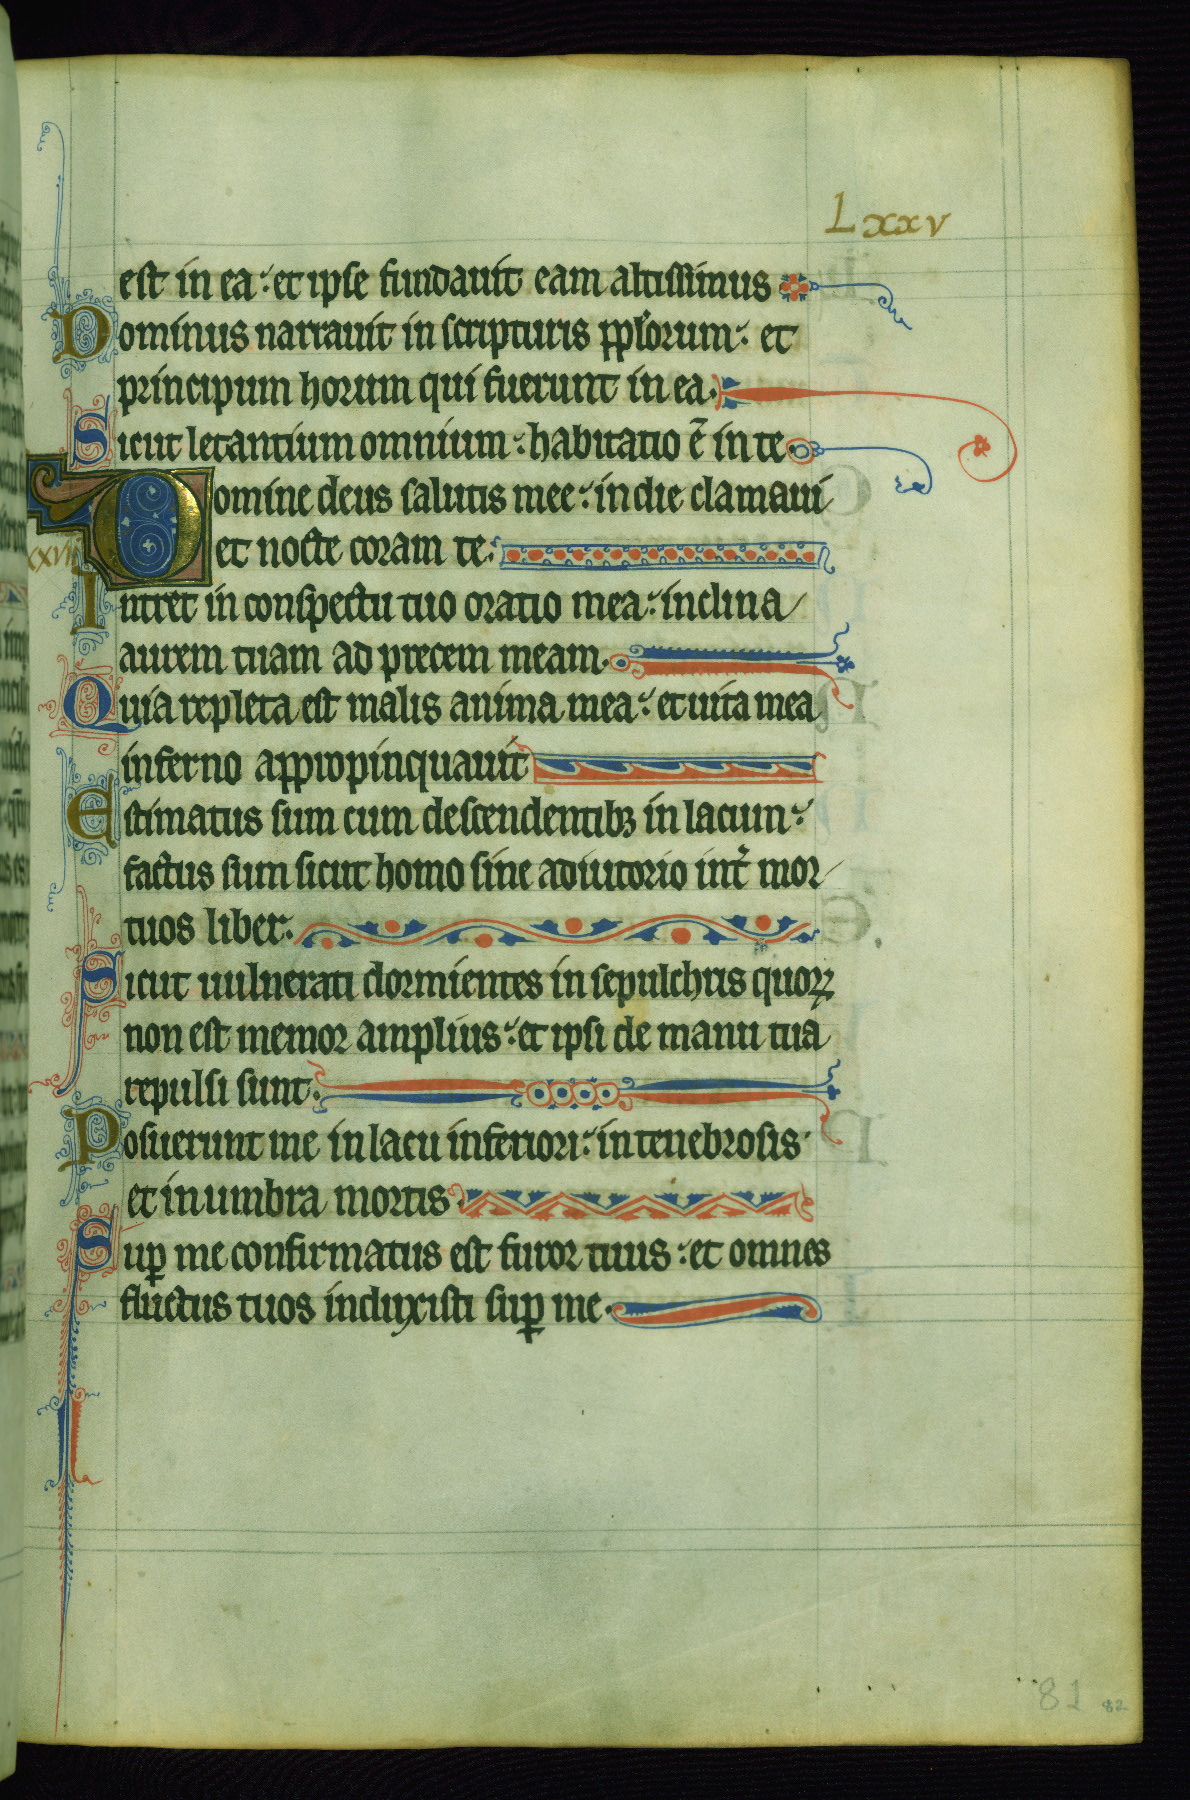 Lxxv
est in ea : et ipse fundauit eam altissimus
Dominus narrauit in scripturis pplorum : et
principum horum qui fuerunt in ea.
Sicut letantium omnium : habitatio ē in te.
Domine deus salutis mee : in die clamaui
et nocte coram te.
Intret in conspectu tuo oratio mea : inclina
aurem tuam ad precem meam.
Quia repleta est malis anima mea : et uita mea
inferno appropinquauit
Estimatus sum cum descendentibꝫ in lacum :
factus sum sicut homo sine adiutorio int̄ mor
tuos liber.
Sicut uulnerati dormientes in sepulchris quoꝝ
non est memor amplius : et ipsi de manu tua
repulsi sunt.
Posuerunt me in lacu inferiori : in tenebrosis
et in umbra mortis.
Suꝑ me confirmatus est furor tuus : et omnes
fluctus tuos induxisti suꝑ me.
81 82